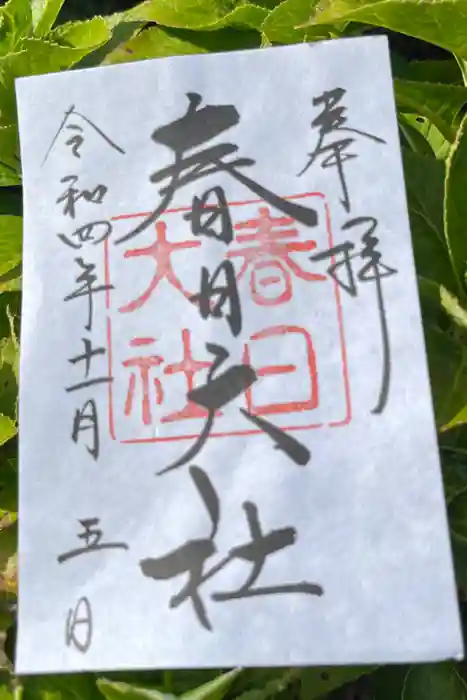 奉拝
春日大社
春日
大社
令和四年十一月五日